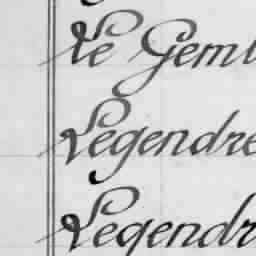 Le Gem
Legendre
Legendr